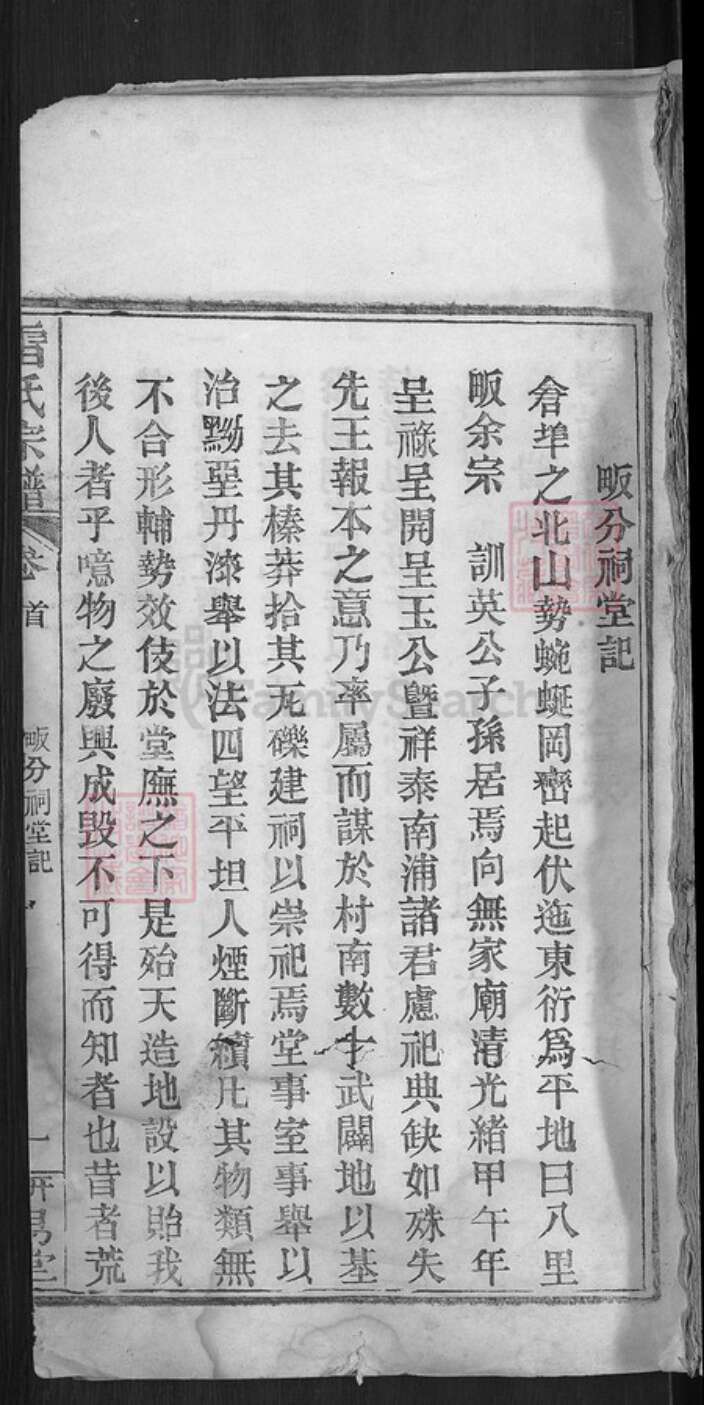 畈分祠堂記
倉埠之北山勢蜿蜒岡巒起伏迤東衍爲平地曰八里
畈余宗 訓英公子孫居焉向無家廟清光緒甲午年
呈祿呈開呈玉公曁祥泰南浦諸君慮祀典缺如殊失
先王報本之意乃率屬而謀於村南數十武闢地以基
之去其榛莽拾其瓦礫建祠以崇祀焉堂事室事舉以
治黝堊丹漆舉以法四望平坦人煙斷續凡其物類無
不合形輔勢效伎於堂廡之下是殆天造地設以貽我
後人者乎噫物之廢興成毀不可得而知者也昔者荒
氏宗譜
卷首
畈分祠堂記
一
昜堂
FamilySearch